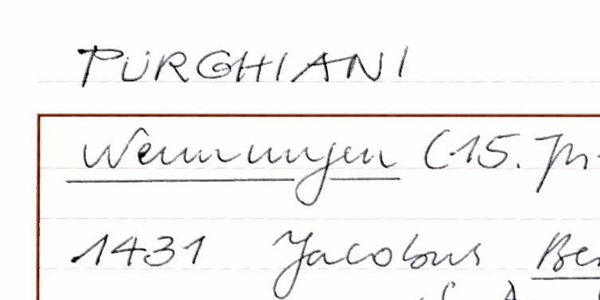 PURGHIANI
Wemmingen (15. Jh.
1431 Jacobus Be